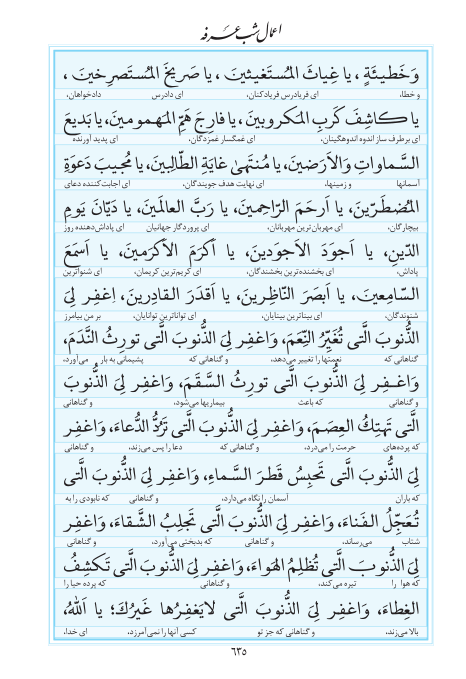 اعمال شب عرفه
وَخَطیـئَةٍ ، یا غِیاثَ المُستَغیثینَ ، یا صَریخَ المُستَصرِخینَ ،
و خطا، ای فریادرس فریادکنان، ای دادرس دادخواهان،
یا کاشِفَ کَربِ المَکروبینَ، یا فارِجَ هَمِّ المَهمومینَ، یا بَدیعَ
ای برطرف ساز اندوه اندوهگینان، ای غمگسار غمزدگان، ای پدید آورنده
السَّماواتِ وَالاَرَضینَ، یا مُنتَهیٰ غایَةِ الطّالِبینَ، یا مُجیبَ دَعوَةِ
آسمانها و زمینها، ای نهایت هدف جویندگان، ای اجابت‌کننده دعای
المُضطَرّینَ، یا اَرحَمَ الرّاحِمینَ، یا رَبَّ العالَمینَ، یا دَیّانَ یَومِ
بیچارگان، ای مهربان‌ترین مهربانان، ای پروردگار جهانیان ای پاداش‌دهنده روز
الدّینِ، یا اَجوَدَ الاَجوَدینَ، یا اَکرَمَ الاَکرَمینَ، یا اَسمَعَ
پاداش، ای بخشنده‌ترین بخشندگان، ای کریم‌ترین کریمان، ای شنواترین
السّامِعینَ، یا اَبصَرَ النّاظِرینَ، یا اَقدَرَ القادِرینَ، اِغفِر لِیَ
شنوندگان، ای بیناترین بینایان، ای تواناترین توانایان، بر من بیامرز
الذُّنوبَ الَّتی تُغَیِّرُ النِّعَمَ، وَاغفِر لِیَ الذُّنوبَ الَّتی تورِثُ النَّدَمَ،
گناهانی که نعمتها را تغییر می‌دهد، و گناهانی که پشیمانی به بار می‌آورد،
وَاغـفِر لِیَ الذُّنوبَ الَّتی تورِثُ السَّقَمَ، وَاغفِر لِیَ الذُّنوبَ
و گناهانی که باعث بیماریها می‌شود، و گناهانی
الَّتی تَهتِکُ العِصَمَ، وَاغفِر لِیَ الذُّنوبَ الَّتی تَرُدُّ الدُّعاءَ، وَاغفِر
که پرده‌های حرمت را می‌درد، و گناهانی که دعا را پس می‌زند، و گناهانی
لِیَ الذُّنوبَ الَّتی تَحبِسُ قَطرَ السَّماءِ، وَاغفِر لِیَ الذُّنوبَ الَّتی
که باران آسمان را نگاه می‌دارد، و گناهانی که نابودی را به
تُعَجِّلُ الفَناءَ، وَاغفِر لِیَ الذُّنوبَ الَّتی تَجلِبُ الشَّقاءَ، وَاغفِر
شتاب می‌رساند، و گناهانی که بدبختی می‌آورد، و گناهانی
لِیَ الذُّنوبَ الَّتی تُظلِمُ الهَواءَ، وَاغفِر لِیَ الذُّنوبَ الَّتی تَکشِفُ
که هوا را تیره می‌کند، و گناهانی که پرده حیا را
الغِطاءَ، وَاغفِر لِیَ الذُّنوبَ الَّتی لایَغفِرُها غَیرُکَ؛ یا اَللهُ،
بالا می‌زند، و گناهانی که جز تو کسی آنها را نمی‌آمرزد، ای خدا،
٦٣٥